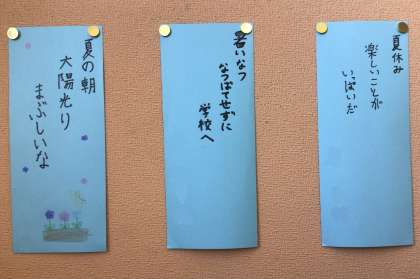 夏休み
楽しいことが
いっぱいだ
暑いなつ
なつばてせずに
学校へ
夏の朝
太陽光り
まぶしいな